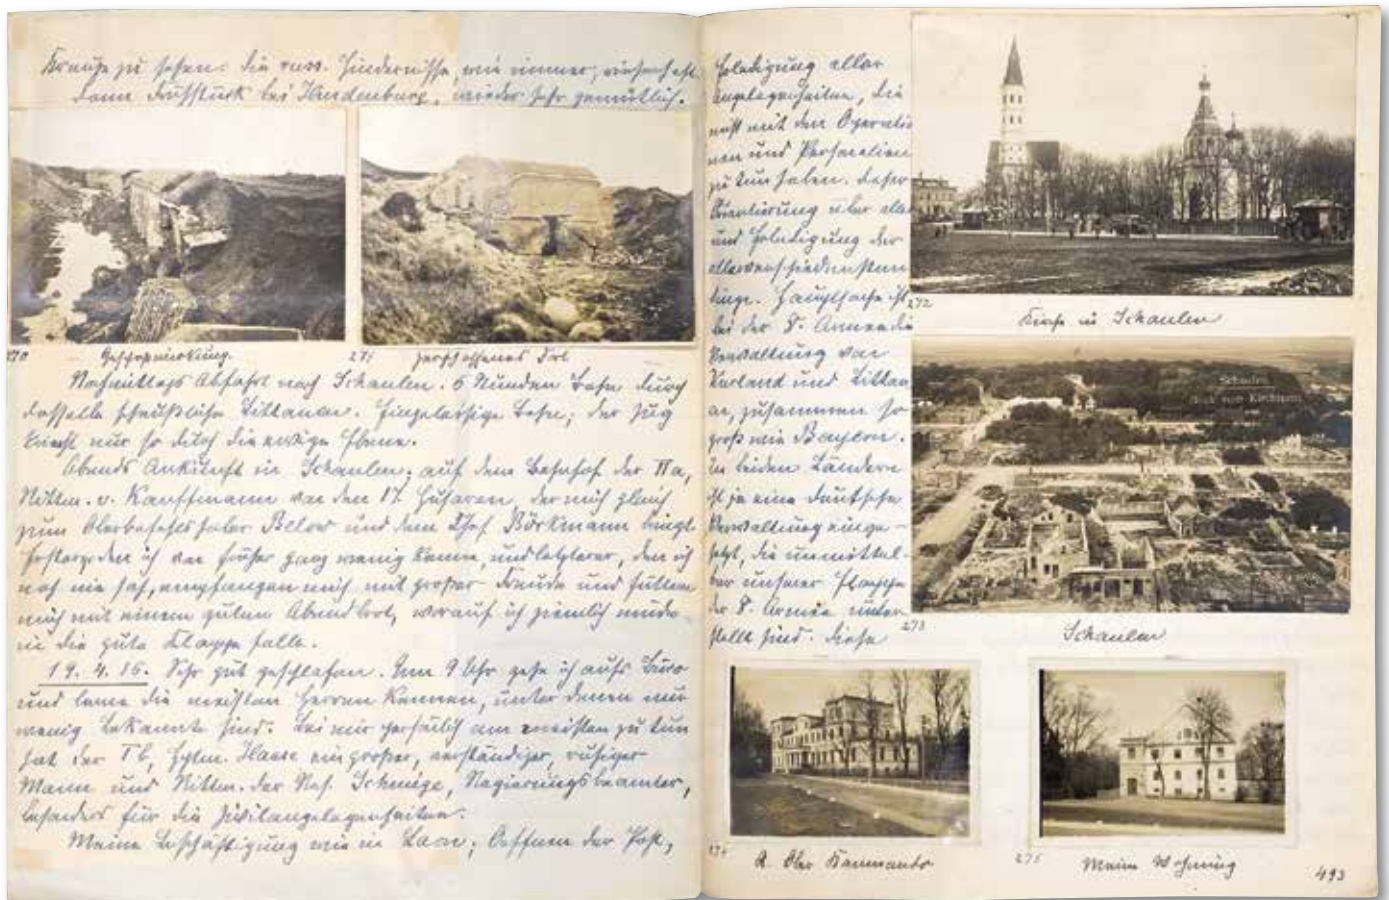 zu sehen: die russ. Hindernisse, wie immer, einfach ist
dann Frühstück bei Hindenburg, wieder sehr gemütlich.
270 Geschosswirkung.
271 zerschossenes Fort
Nachmittags Abfahrt nach Schaulen. 6 Stunden Bahn durch
dasselbe scheußliche Littauen. Eingeleisige Bahn; der Zug
nur so durch die ewige Ebene.
Abends Ankunft in Schaulen; auf dem Bahnhof der IIa,
Rittm. v. Kauffmann von den 17. Husaren, der mich gleich
zum Oberbefehlshaber Below und dem Chef Böckmann bringt.
Ersterer, den ich von früher ganz wenig kenne, und letzterer, den ich
noch nie sah, empfangen mich mit großer Freude und füttern
mich mit einem guten Abendbrot, worauf ich ziemlich müde
in die gute Klappe falle.
19. 4. 16. Sehr gut geschlafen. Um 9 Uhr gehe ich aufs Büro
und lerne die meisten Herren kennen, unter denen nur
wenig bekannte sind. Bei mir persönlich am meisten zu tun
hat der Ib, Hptm. Haase ein großer, verständiger, ruhiger
Mann und Rittm. der Res. Schmige, Regierungsbeamter,
besonders für die Zivilangelegenheiten.
Meine Beschäftigung wie in Laon; Oeffnen der Post,
Erledigung aller
Angelegenheiten, die
nicht mit den Operatio
nen und Personalien
zu tun haben. Daher
Orientierung über alles
und Erledigung der
allerverschiedensten
Dinge. Hauptsache ist
bei der 8. Armee die
Verwaltung von
Kurland und Littau
en, zusammen so
groß wie Bayern.
In beiden Ländern
ist ja eine deutsche
Verwaltung einge-
setzt, die unmittel-
bar unserer Etappe
der 8. Armee unter-
stellt sind. Diese
272 Kirche in Schaulen
Schaulen
Blick vom Kirchturm
273 Schaulen
274 A. Ober Kommando
275 Meine Wohnung
493